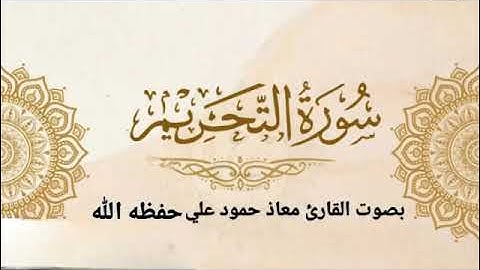 سُورَةُ التَّحْرِيمِ
بصوت القارئ معاذ حمود علي حفظه الله